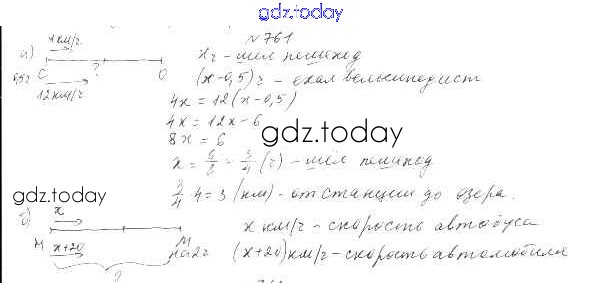 gdz.today
№761
а) 4км/ч
х ч - шёл пешеход
?
0,5ч С О
(х-0,5) ч - ехал велосипедист
12км/ч
4х = 12(х-0,5)
4х = 12х-6
8х = 6
gdz.today
х = 6/8 = 3/4 (ч) - шёл пешеход
gdz.today
3/4 · 4 = 3 (км) - от станции до озера.
б) х
х км/ч - скорость автобуса
М х+20 М
на 2ч (х+20) км/ч - скорость автомобиля
?